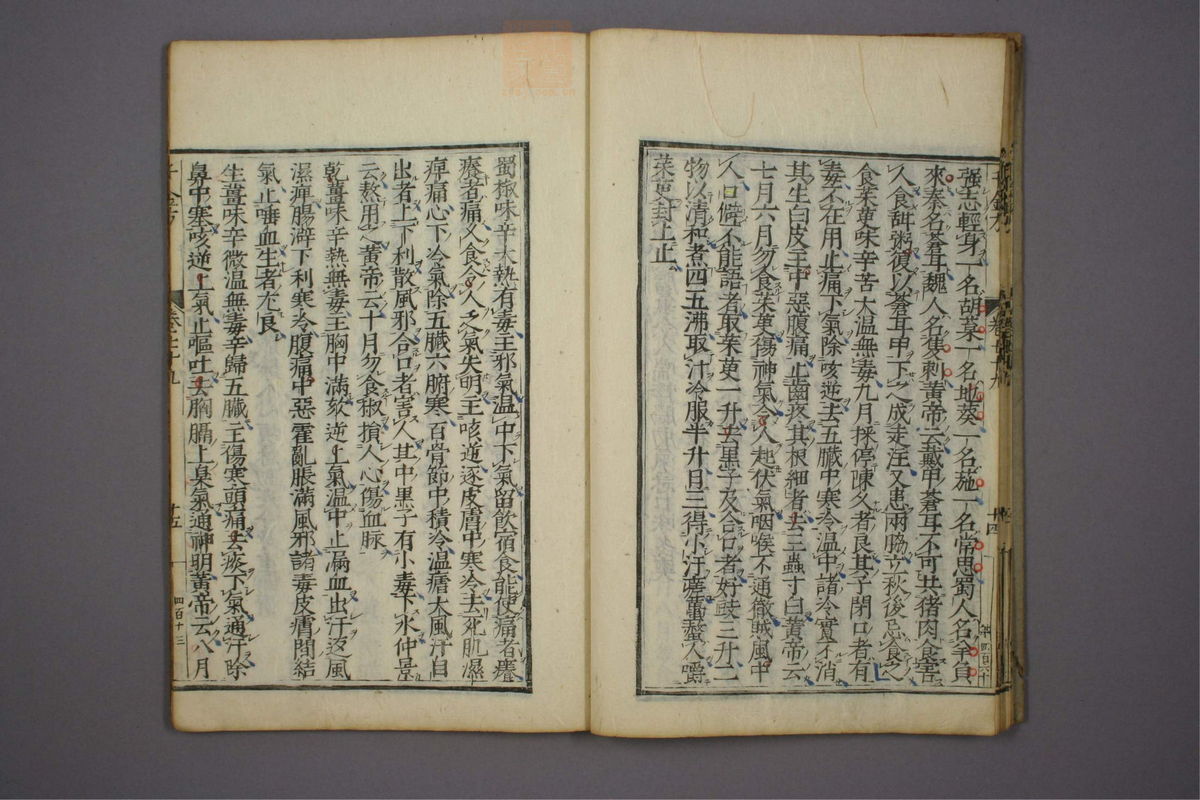 強志輕身一名胡葈一名地葵一名葹一名常思蜀人名羊負
來秦名蒼耳魏人名隻刺黃帝云戴甲蒼耳不可共猪肉食害
人食甜粥復以蒼耳甲下之成走注又患兩脇立秋後忌食之
食茱萸味辛苦大溫無毒九月採停陳久者良其子閉口者有
毒不在用止痛下氣除咳逆去五臟中寒冷溫中諸冷實不消
其生白皮主中惡腹痛止齒疼其根細者去三蟲寸白黃帝云
七月六月勿食茱萸傷神氣令人起伏氣咽喉不通徹賊風中
人口僻不能語者取茱萸一升去黑子及合口者好豉三升二
物以清和煮四五沸取汁冷服半升日三得小汗差蠆螫人嚼
茱萸封上止
蜀椒味辛大熱有毒主邪氣溫中下氣留飲宿食能使痛者癢
癢者痛久食令人乏氣失明主咳逆逐皮膚中寒冷去死肌濕
痺痛心下冷氣除五臟六腑寒百骨節中積冷溫瘧大風汗自
出者上下利散風邪合口者害人其中黑子有小毒下水仲景
云熬用之黃帝云十月勿食椒損人心傷血脉
乾薑味辛熱無毒主胸中滿欬逆上氣溫中止漏血出汗逐風
濕痺腸澼下利寒冷腹痛中惡霍亂脹滿風邪諸毒皮膚間結
氣止唾血生者尤良
生薑味辛微溫無毒辛歸五臟主傷寒頭痛去痰下氣通汗除
鼻中塞咳逆上氣止嘔吐去胸膈上臭氣通神明黃帝云八月
千金方
十五
四百十三